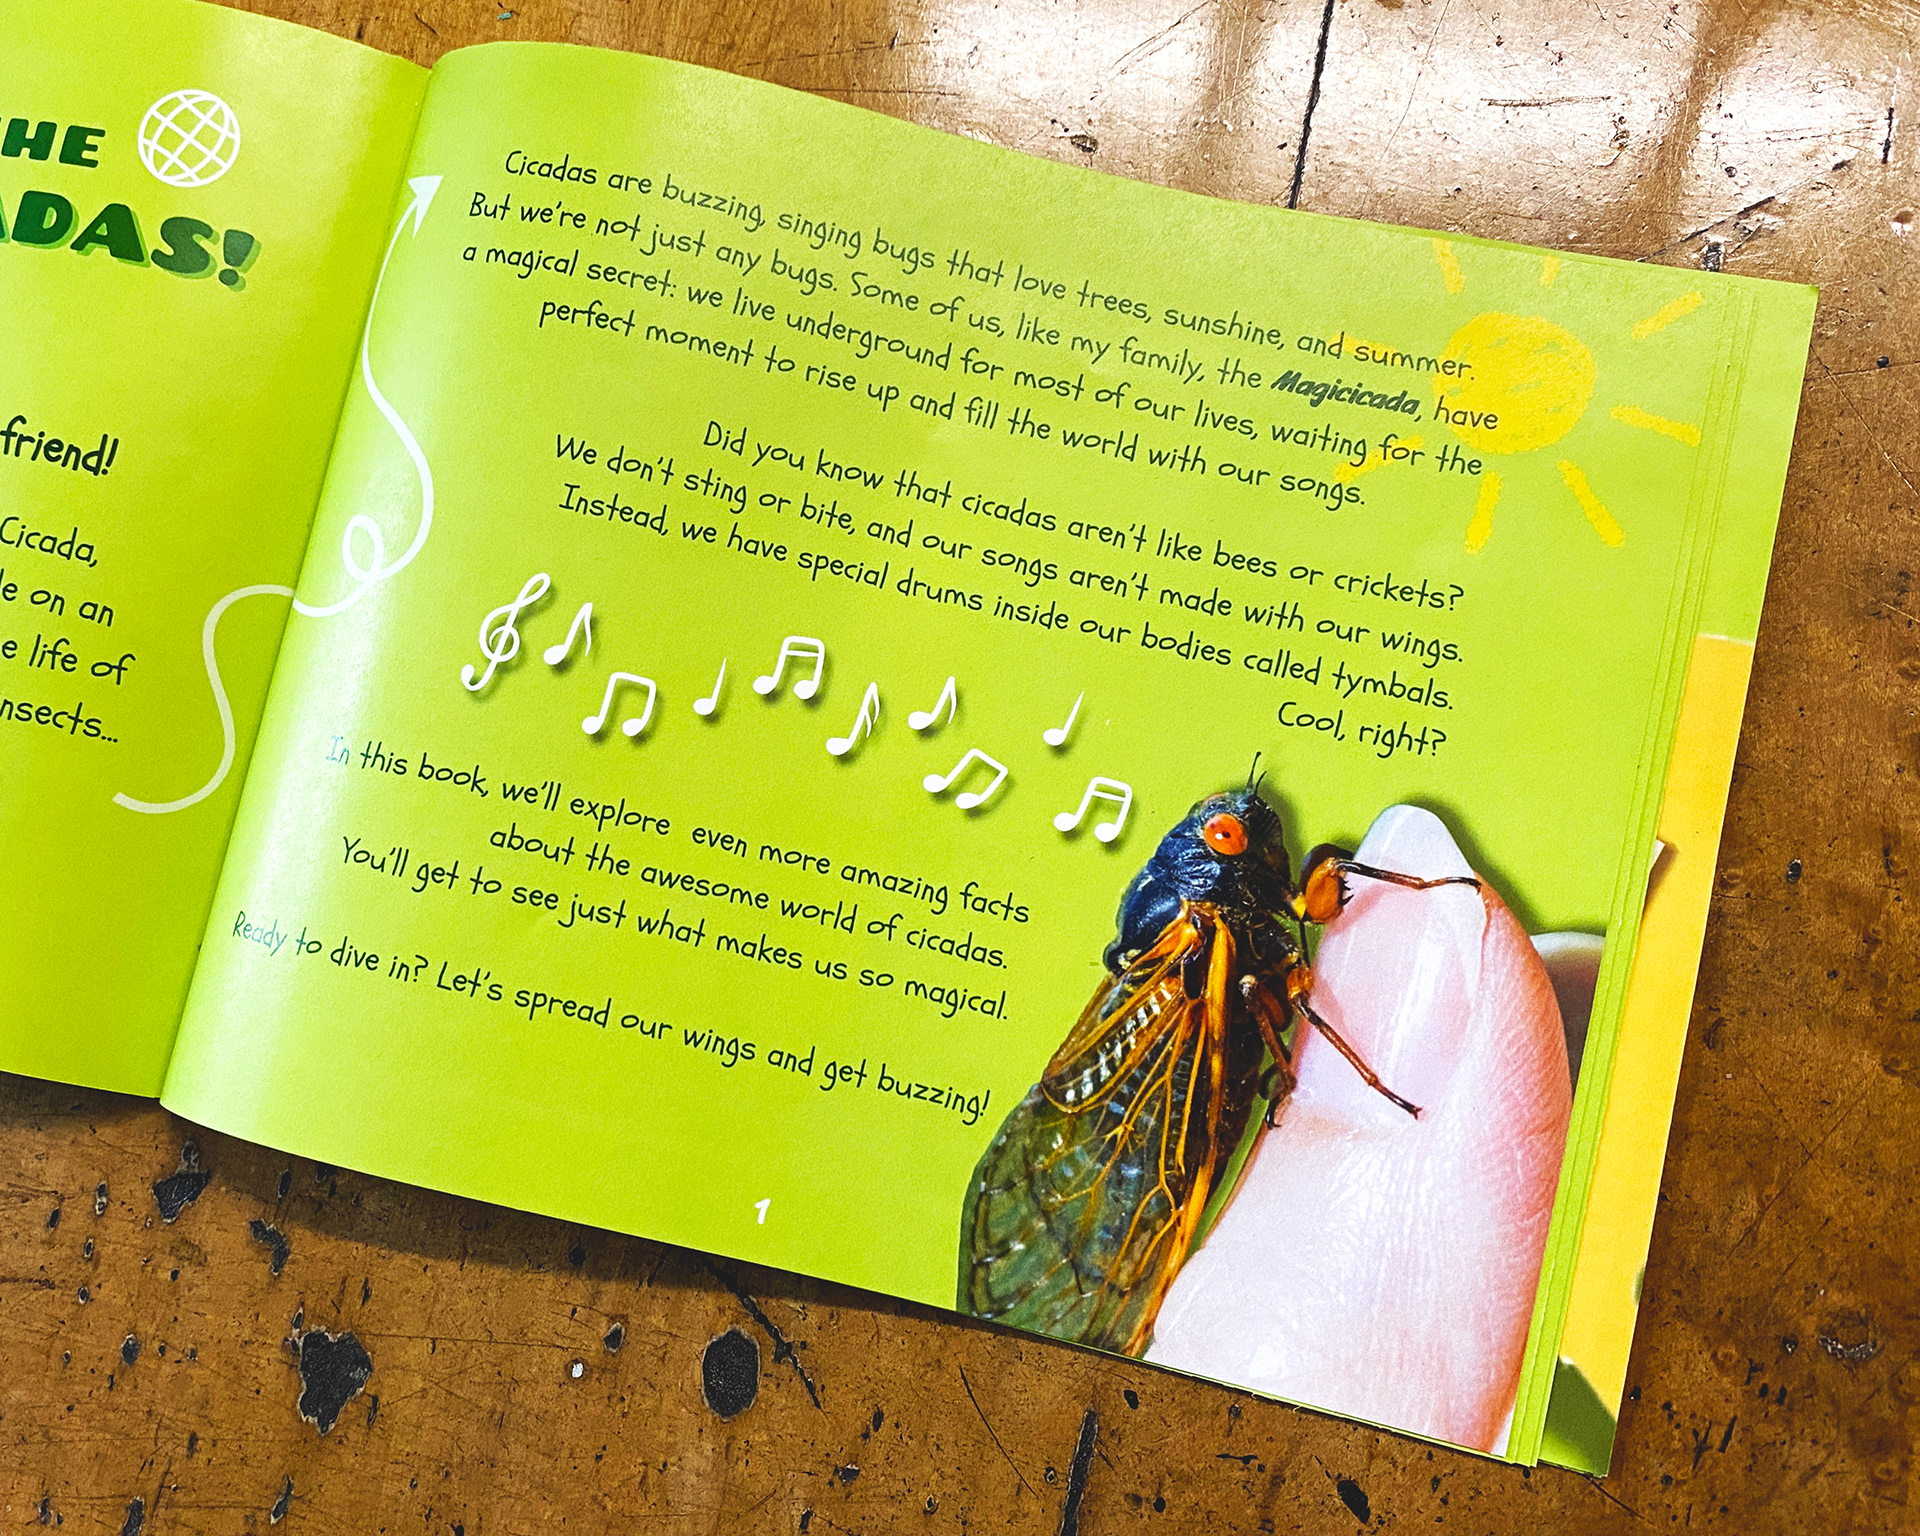 THE
ADAS!
friend!
Cicada,
on an
life of
nsects...
Cicadas are buzzing, singing bugs that love trees, sunshine, and summer.
But we're not just any bugs. Some of us, like my family, the Magicicada, have
a magical secret: we live underground for most of our lives, waiting for the
perfect moment to rise up and fill the world with our songs.
Did you know that cicadas aren't like bees or crickets?
We don't sting or bite, and our songs aren't made with our wings.
Instead, we have special drums inside our bodies called tymbals.
Cool, right?
In this book, we'll explore even more amazing facts
about the awesome world of cicadas.
You'll get to see just what makes us so magical.
Ready to dive in? Let's spread our wings and get buzzing!
1